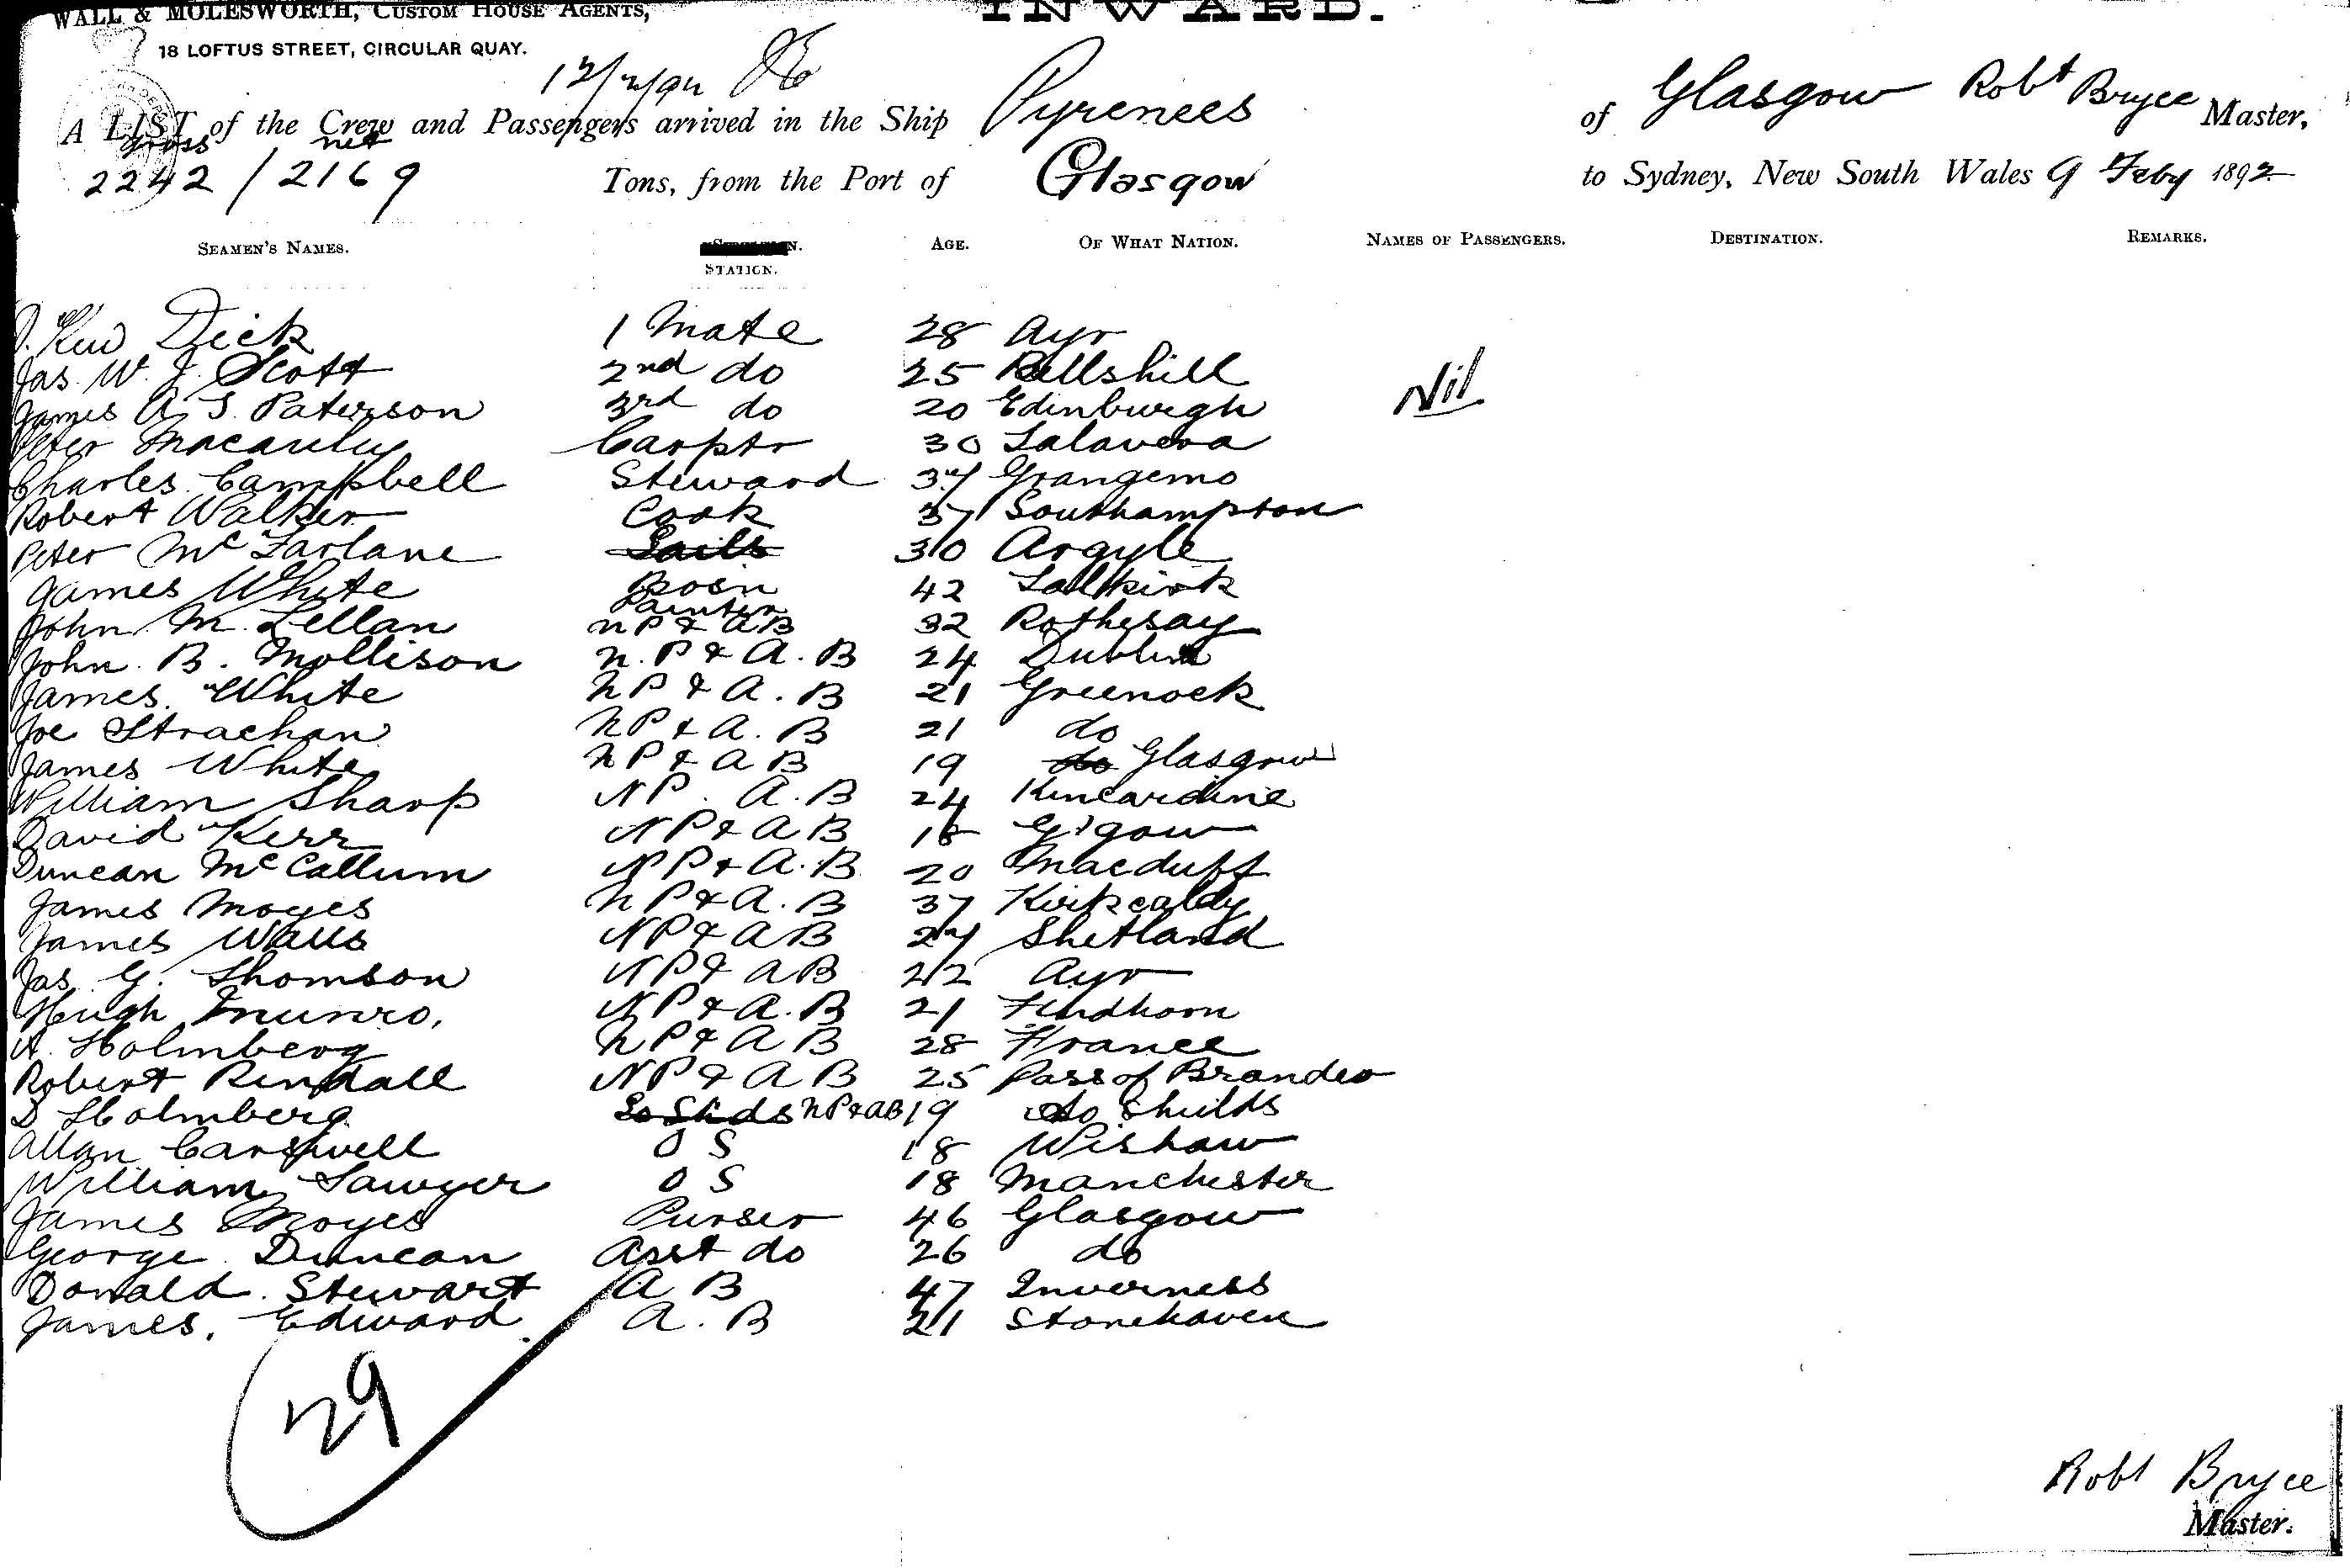 WALL & MOLESWORTH, CUSTOM HOUSE AGENTS,
INWARD.
18 LOFTUS STREET, CIRCULAR QUAY.
A LIST of the Crew and Passengers arrived in the Ship Pyrenees of Glasgow Robt Bryce Master,
gross net
2242 / 2169 Tons, from the Port of Glasgow to Sydney, New South Wales 9 Feby 1892
SEAMEN'S NAMES. STATION. AGE. OF WHAT NATION. NAMES OF PASSENGERS. DESTINATION. REMARKS.
Dick 1 Mate 28 Ayr
Jas. W. J. Scott 2nd do 25 Bellshill
Nil
James A. S. Paterson 3rd do 20 Edinburgh
Peter Macauley Carptr 30 Talavera
Charles Campbell Steward 34 Grangemo
Robert Walker Cook 37 Southampton
Peter McFarlane Sails 30 Argyle
James White Bosn 42 Falkirk
Painter
John M. Lellan NP & AB 32 Rothesay
John B. Mollison N.P & A.B 24 Dublin
James White NP & A.B 21 Greenock
Joe Strachan NP & A.B 21 do
James White NP & AB 19 do Glasgow
William Sharp NP. A.B 24 Kincardine
David Kerr NP & AB 18 G'gow
Duncan McCallum NP & A.B. 20 Macduff
James Moyes NP & A.B 37 Kirkcaldy
James Walls NP & AB 24 Shetland
Jas. G. Thomson NP & AB 22 Ayr
Hugh Munro, NP & A.B 21 Findhorn
A. Holmberg NP & AB 28 France
Robert Rendall NP & AB 25 Pass of Brander
D Holmberg So Shds NP & AB 19 do Shields
Allan Carswell O S 18 Wishaw
William Sawyer O S 18 Manchester
James Moyes Purser 46 Glasgow
George Duncan Asst do 26 do
Donald Stewart A B 47 Inverness
James. Edward A. B 21 Stonehaven
29
Robt Bryce
Master.